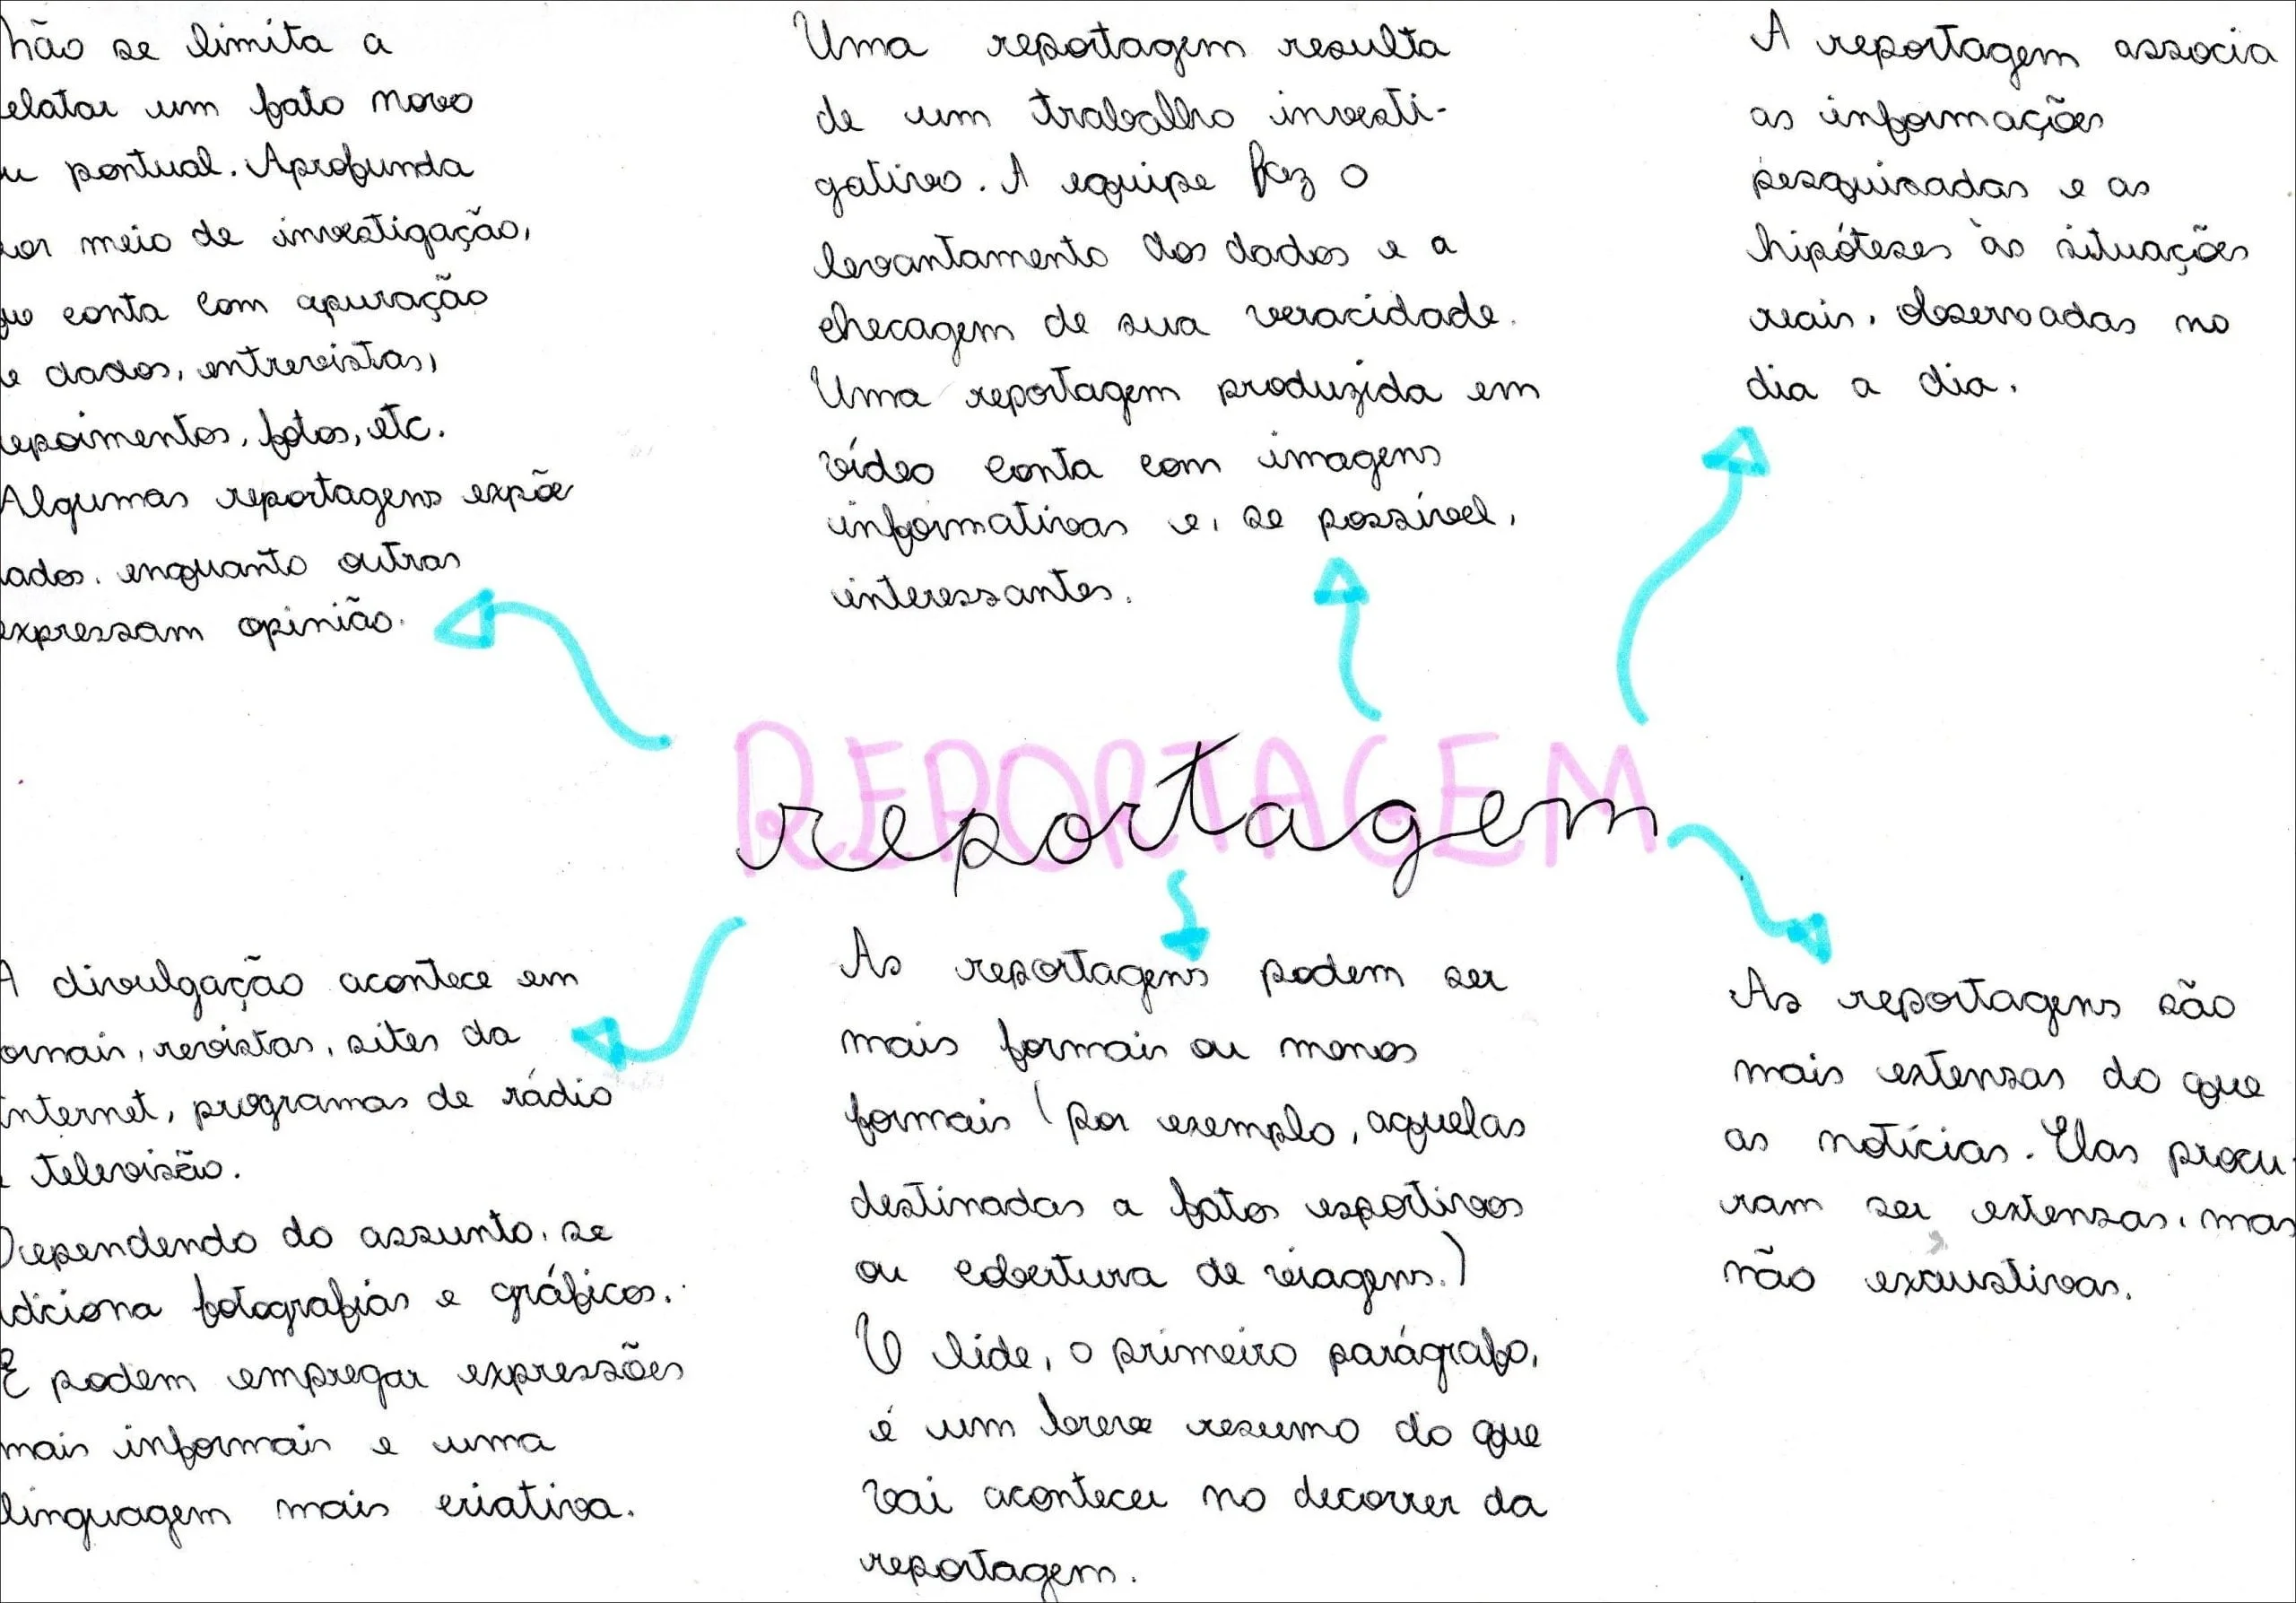 não se limita a
elatar um fato novo
u pontual. Aprofunda
or meio de investigação,
ue conta com apuração
e dados, entrevistas,
epoimentos, fotos, etc.
Algumas reportagens expõe
ados, enquanto outras
expressam opinião.
Uma reportagem resulta
de um trabalho investi-
gativo. A equipe faz o
levantamento dos dados e a
checagem de sua veracidade.
Uma reportagem produzida em
vídeo conta com imagens
informativas e, se possível,
interessantes.
A reportagem associa
as informações
pesquisadas e as
hipóteses às situações
reais, observadas no
dia a dia.
REPORTAGEM
reportagem
A divulgação acontece em
ornais, revistas, sites da
internet, programas de rádio
e televisão.
Dependendo do assunto, se
adiciona fotografias e gráficos.
E podem empregar expressões
mais informais e uma
linguagem mais criativa.
As reportagens podem ser
mais formais ou menos
formais (por exemplo, aquelas
destinadas a fatos esportivos
ou cobertura de viagens.)
O lide, o primeiro parágrafo,
é um breve resumo do que
vai acontecer no decorrer da
reportagem.
As reportagens são
mais extensas do que
as notícias. Elas procu-
ram ser extensas, mas
não exaustivas.